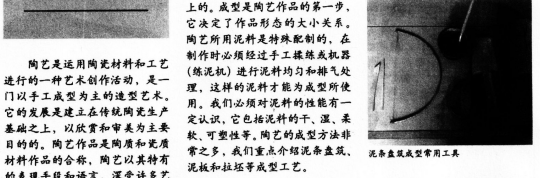 陶艺是运用陶瓷材料和工艺
进行的一种艺术创作活动，是一
门以手工成型为主的造型艺术。
它的发展是建立在传统陶瓷生产
基础之上，以欣赏和审美为主要
目的的。陶艺作品是陶质和瓷质
材料作品的合称，陶艺以其特有
的表现手段和语言，深受许多艺
上的。成型是陶艺作品的第一步，
它决定了作品形态的大小关系。
陶艺所用泥料是特殊配制的，在
制作时必须经过手工揉练或机器
(练泥机) 进行泥料均匀和排气处
理，这样的泥料才能为成型所使
用。我们必须对泥料的性能有一
定认识，它包括泥料的干、湿、柔
软、可塑性等。陶艺的成型方法非
常之多，我们重点介绍泥条盘筑、
泥板和拉坯等成型工艺。
泥条盘筑成型常用工具